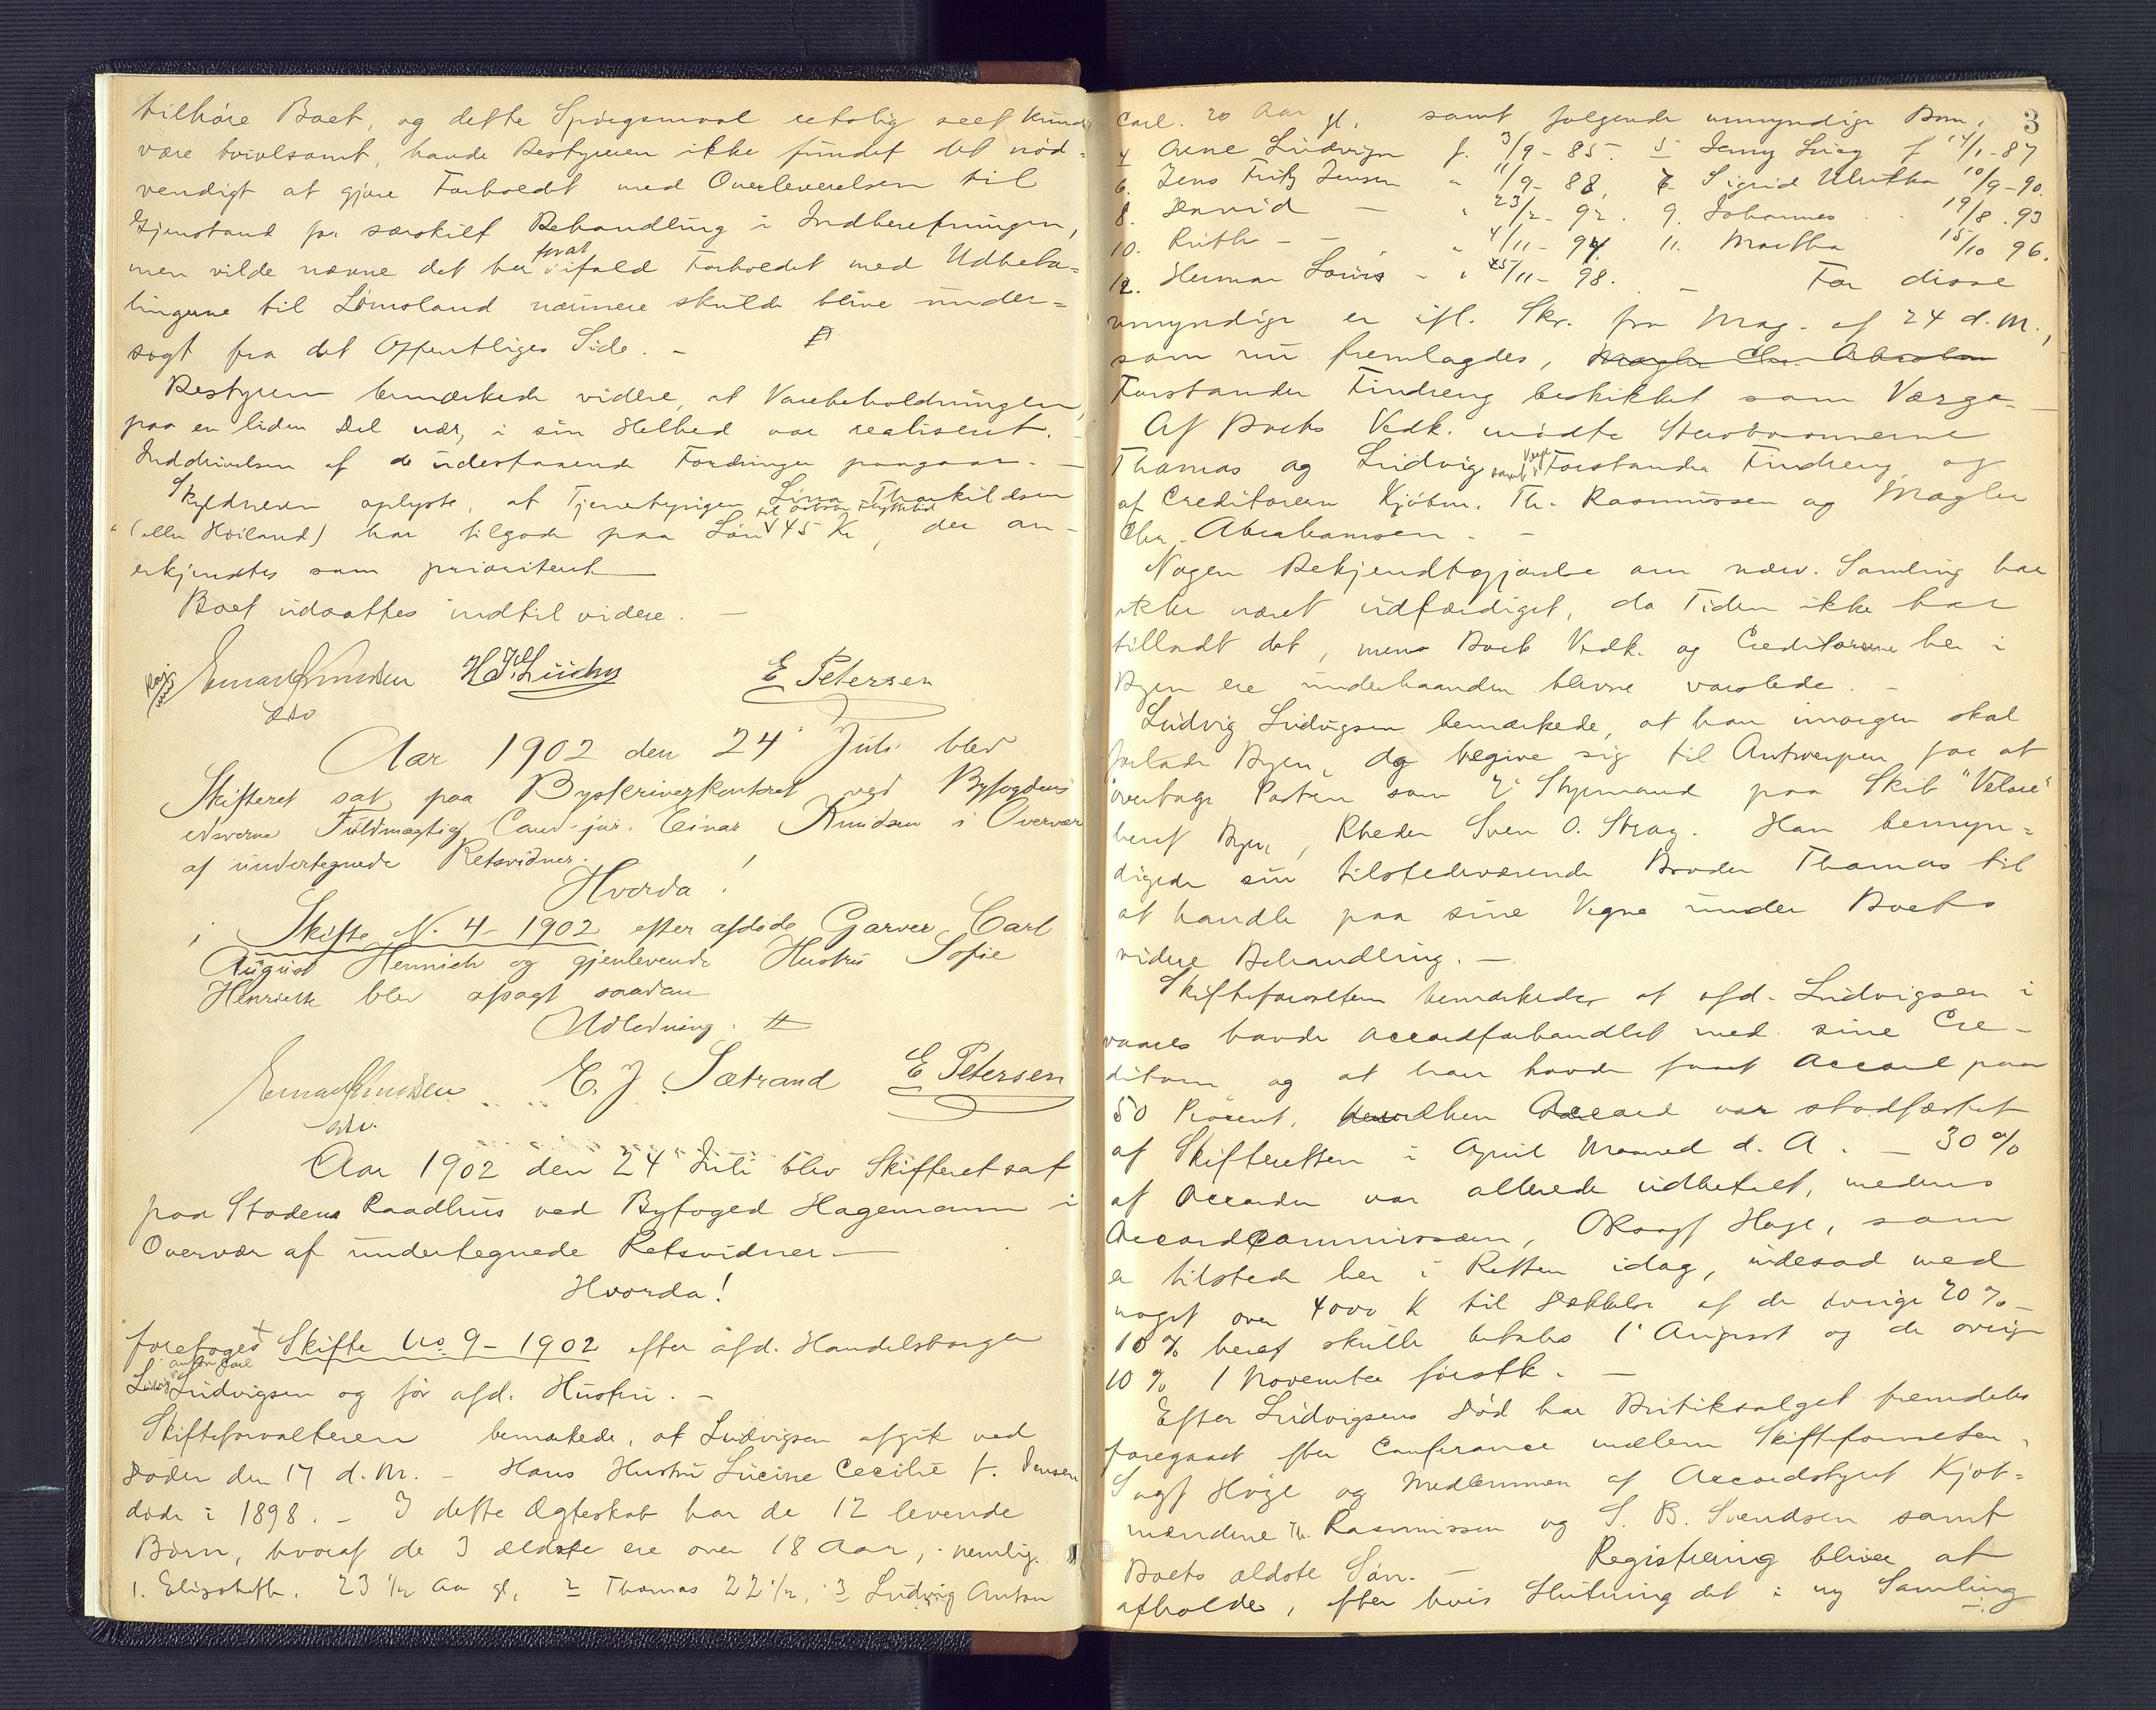 tilhøre Boet, og dette Spørgsmaal retslig seet kunde
være tvivlsomt, havde Bestyreren ikke fundet det nød=
vendigt at gjøre Forholdet med Overleverelsen til
Gjenstand for særskilt Behandling i Indberetningen,
men vilde nævne det her for at ifald Forholdet med Udbeta=
lingerne til Lømsland nærmere skulde blive under=
søgt fra det Offentliges Side. –
Bestyreren bemærkede videre, at Varebeholdningen,
paa en liden Del nær, i sin Helhed var realiseret. –
Inddrivelsen af de udestaaende Fordringer paagaar. –
Skyldneren oplyste, at Tjenestepigen Lina Thorkildsen
(eller Høiland) har tilgode paa Løn til October Flyttetid 45 Kr, der an-
erkjendtes som prioriteret
Boet udsattes indtil videre. –
Einar Knudsen E Petersen
edsv
Aar 1902 den 24' Juli blev
Skifteret sat paa Byskriverkontoret ved Byfogdens
edsvorne Fuldmægtig Cand. jur. Einar Knudsen i Overvær
af undertegnede Retsvidner.
Hvorda!
i Skifte N. 4 – 1902 efter afdøde Garver Carl
August Hennich og gjenlevende Hustru Sofie
Henriette blev afsagt saadan
Udledning.
Einar Knudsen C. J. Sætrand E Petersen
edsv.
Aar 1902 den 24' Juli blev Skifteret sat
paa Stadens Raadhus ved Byfoged Hagemann i
Overvær af undertegnede Retsvidner –
Hvorda!
foretoges Skifte No. 9 – 1902 efter afd. Handelsborger
Ludvig Anton Carl Ludvigsen og før afd. Hustru. –
Skifteforvalteren bemærkede, at Ludvigsen afgik ved
Døden den 17 d. M. – Hans Hustru Lucine Cecilie f. Jensen
døde i 1898. – I dette Ægteskab har de 12 levende
Børn, hvoraf de 3 ældste ere over 18 Aar, nemlig
1. Elisabeth. 23 1/2 Aar gl, 2 Thomas 22 1/2, 3 Ludvig Anton
3
Carl. 20 Aar gl, samt følgende umyndige Børn,
4 Arne Ludvign f. 3/9 – 85. 5 Jenny Lucy f 14/1 – 87
6. Jens Fritz Jensen " 11/9 – 88, 7. Sigrid Ulrikka 10/9 – 90.
8. David – " 23/2 – 92. 9. Johannes 19/8 . 93
10. Ruth – – " 4/11 – 94 11. Martha 15/10 96.
12. Herman Louis – " 25/11 – 98. – For disse
umyndige er ifl. Skr. fra Mag. af 24 d. M.,
som nu fremlagdes, Mægler Chr. Abrahams
Forstander Findreng beskikket som Værge. –
Af Boets Vedk. mødte Stervbosønnerne
Thomas og Ludvig samt Værge Forstander Findreng og
af Creditorerne Kjøbm. Th. Rasmussen og Mægler
Chr. Abrahamsen. –
Nogen Bekjendtgjørelse om nærv. Samling har
ikke været udfærdiget, da Tiden ikke har
tilladt det, mens Boets Vedk. og Creditorerne her i
Byen ere underhaanden blevne varslede. –
Ludvig Ludvigsen bemærkede, at han imorgen skal
forlade Byen og begive sig til Antwerpen for at
overtage Posten som 2' Styrmand paa Skib "Velore"
heraf Byen, Rheder Sven O. Stray. Han bemyn=
digede sin tilstedeværende Broder Thomas til
at handle paa sine Vegne under Boets
videre Behandling. –
Skifteforvalteren bemærkede, at afd. Ludvigsen i
vaares havde accordforhandlet med sine Cre-
ditorer og at han havde faaet Accord paa
50 Procent, hvilken Accord var stadfæstet
af Skifteretten i April Maaned d. A. – 30 %
af Accorden var allerede udbetalt, medens
Accordcommissæren, Sagf Høge, som
er tilstede her i Retten idag, indesad med
noget over 4000 K til Dækkelse af de øvrige 20 %. –
10 % heraf skulle betales 1' August og de øvrige
10 % 1 November førstk. –
Efter Ludvigsens Død har Butiksalget fremdeles
foregaaet efter Conferance mellem Skifteforvalteren,
Sagf Høge og Medlemmer af Accordstyret Kjøb=
mændene Th. Rasmussen og S. B. Svendsen samt
Boets ældste Søn. – Registrering bliver at
afholde, efter hvis Slutning det i ny Samling